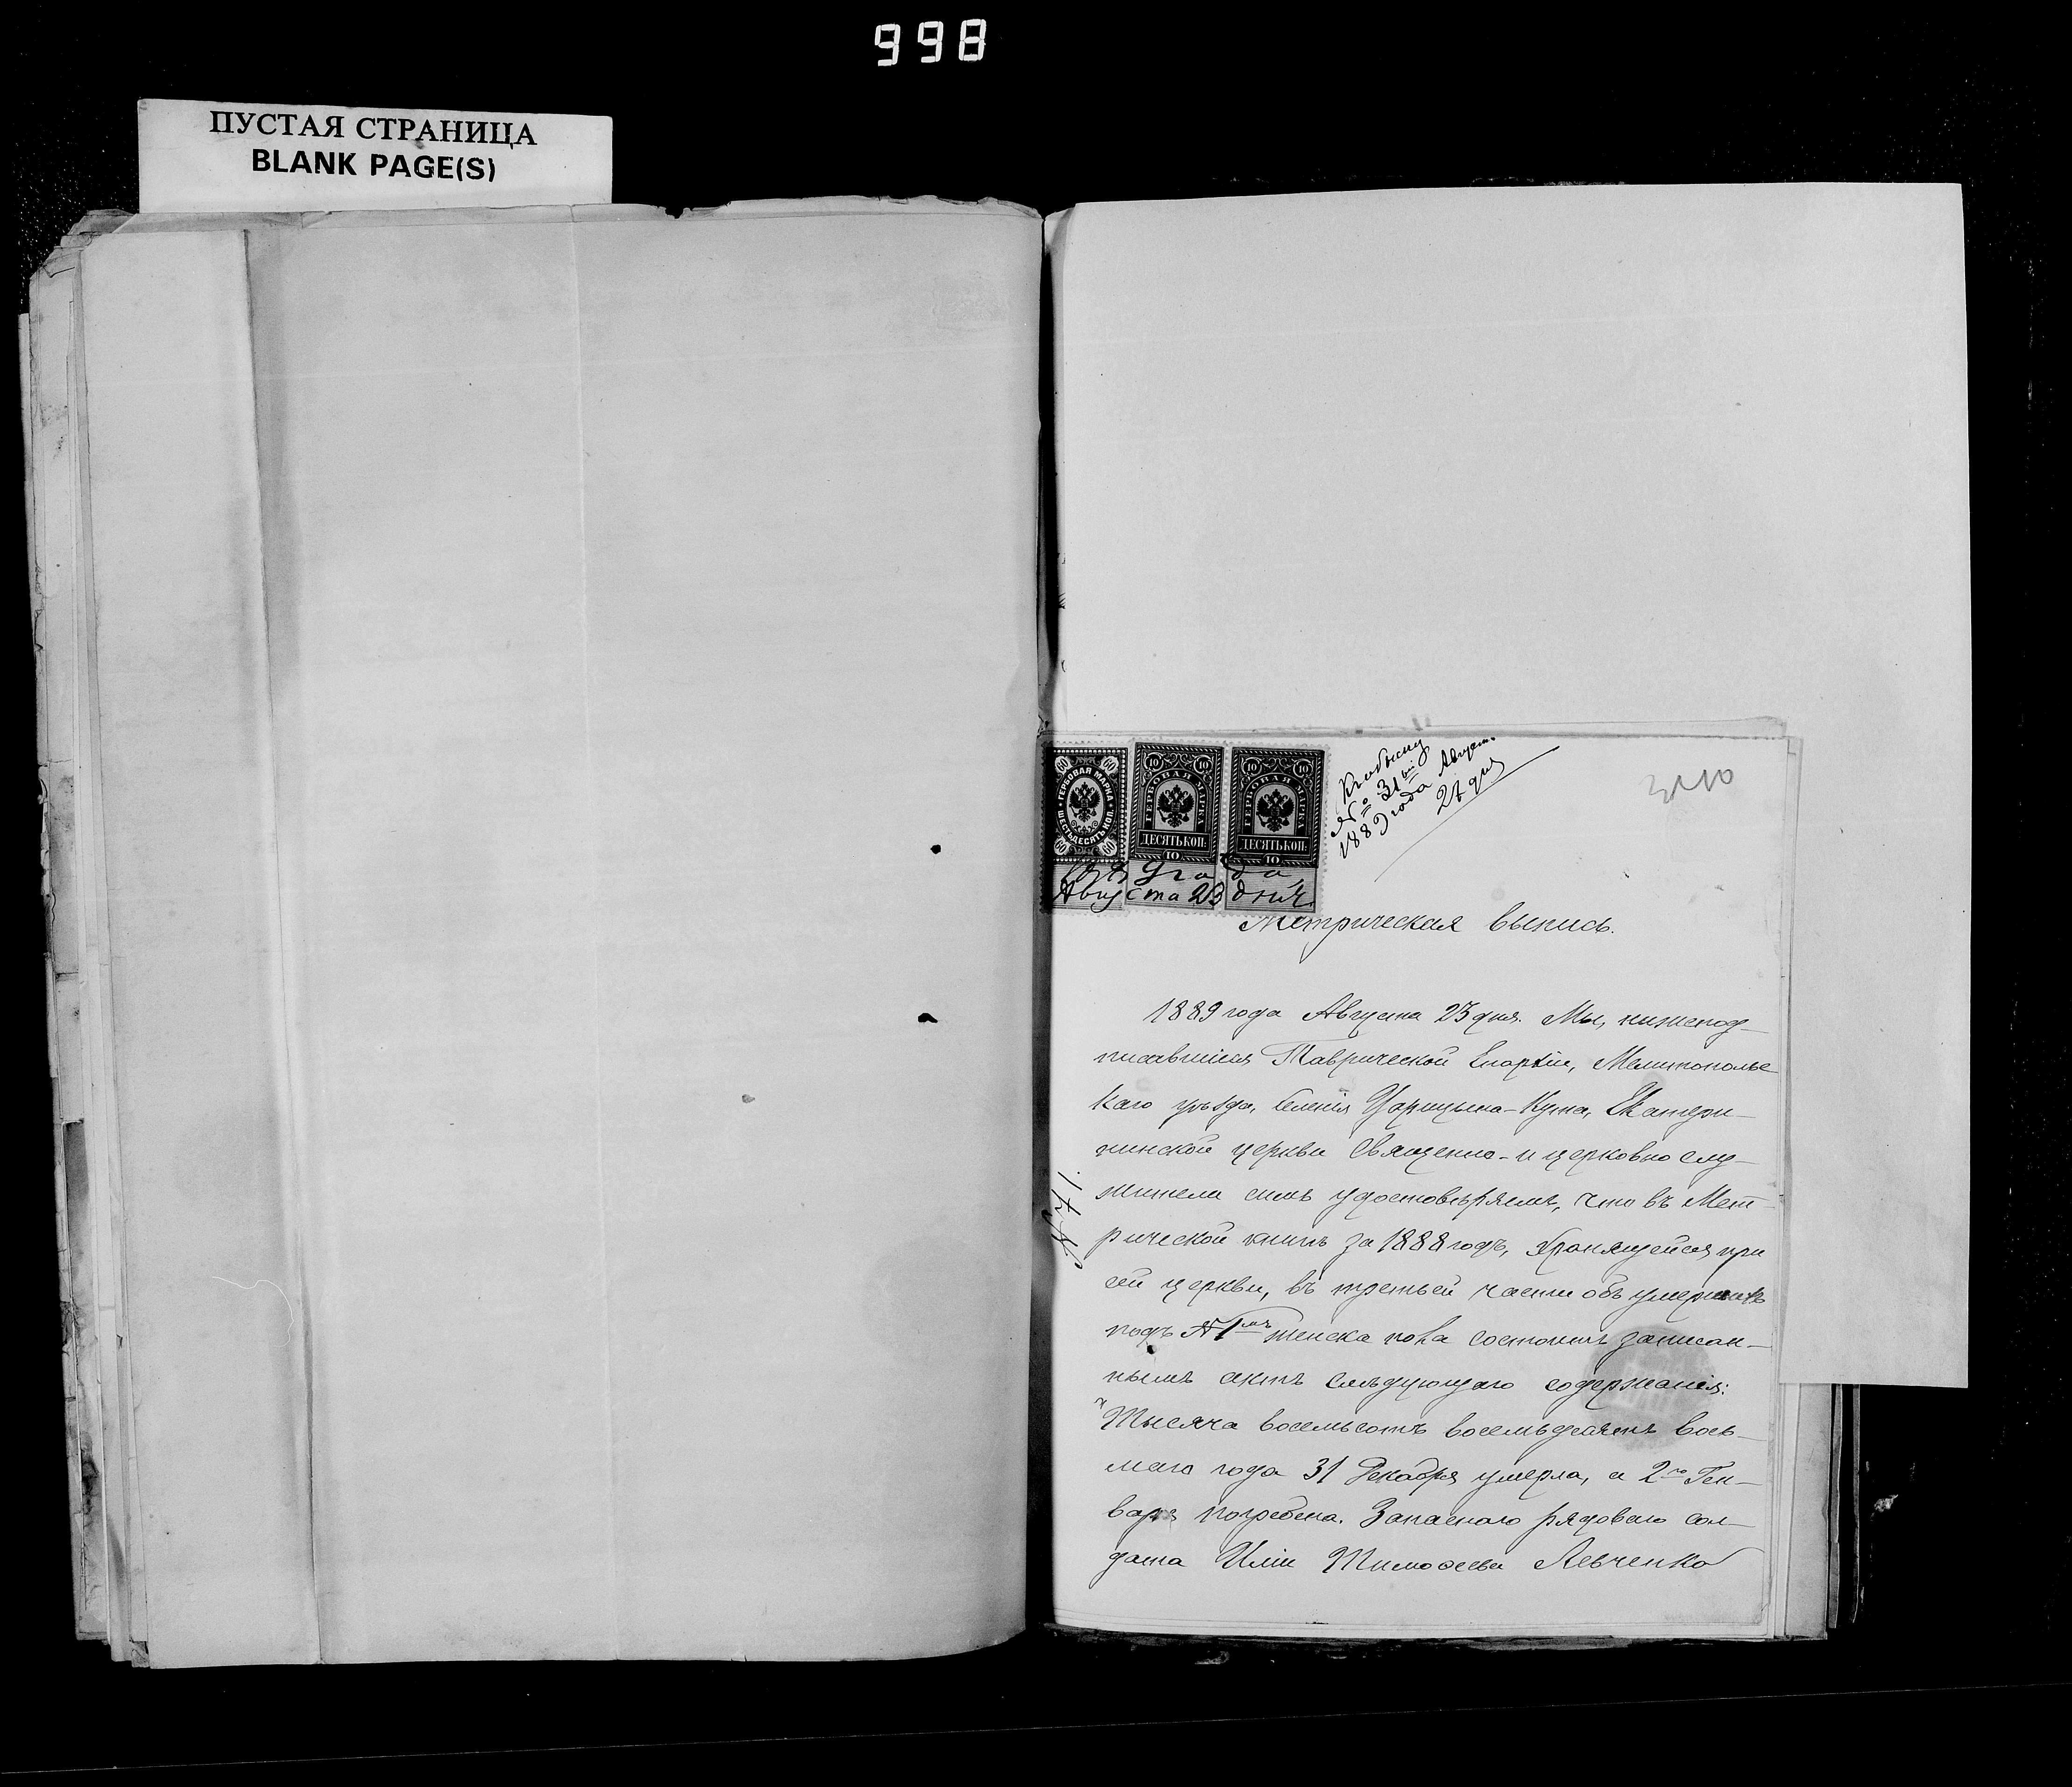 998
ПУСТАЯ СТРАНИЦА
BLANK PAGE(S)
60 60
ГЕРБОВАЯ МАРКА
ШЕСТЬДЕСЯТЪ КОП.
60 60
10 10
ГЕРБОВАЯ МАРКА
ДЕСЯТЬ КОП.
10
10 10
ГЕРБОВАЯ МАРКА
ДЕСЯТЬ КОП.
10
Августа 23 дня
Къ обыску
№ 31ый
1889 года Август.
21 дня
Метрическая выпись.
№ 71.
1889 года Августа 23 дня. Мы, нижепод-
писавшіеся Таврической Епархіи, Мелитопольс
каго уѣзда, селенія Царицына-Кута, Екатери-
нинской церкви Священно- и церковно слу-
жители симъ удостовѣряемъ, что въ Мет-
рической книгѣ за 1888 годъ, хранящейся при
сей церкви, въ третьей части объ умершихъ
подъ №1мъ женска пола состоитъ записан-
нымъ актъ слѣдующаго содержанія:
"Тысяча восемьсотъ восемьдесятъ вось-
маго года 31 Декабря умерла, а 2го Ген-
варя погребена. Запаснаго рядоваго сол-
дата Иліи Тимоѳеева Левченко